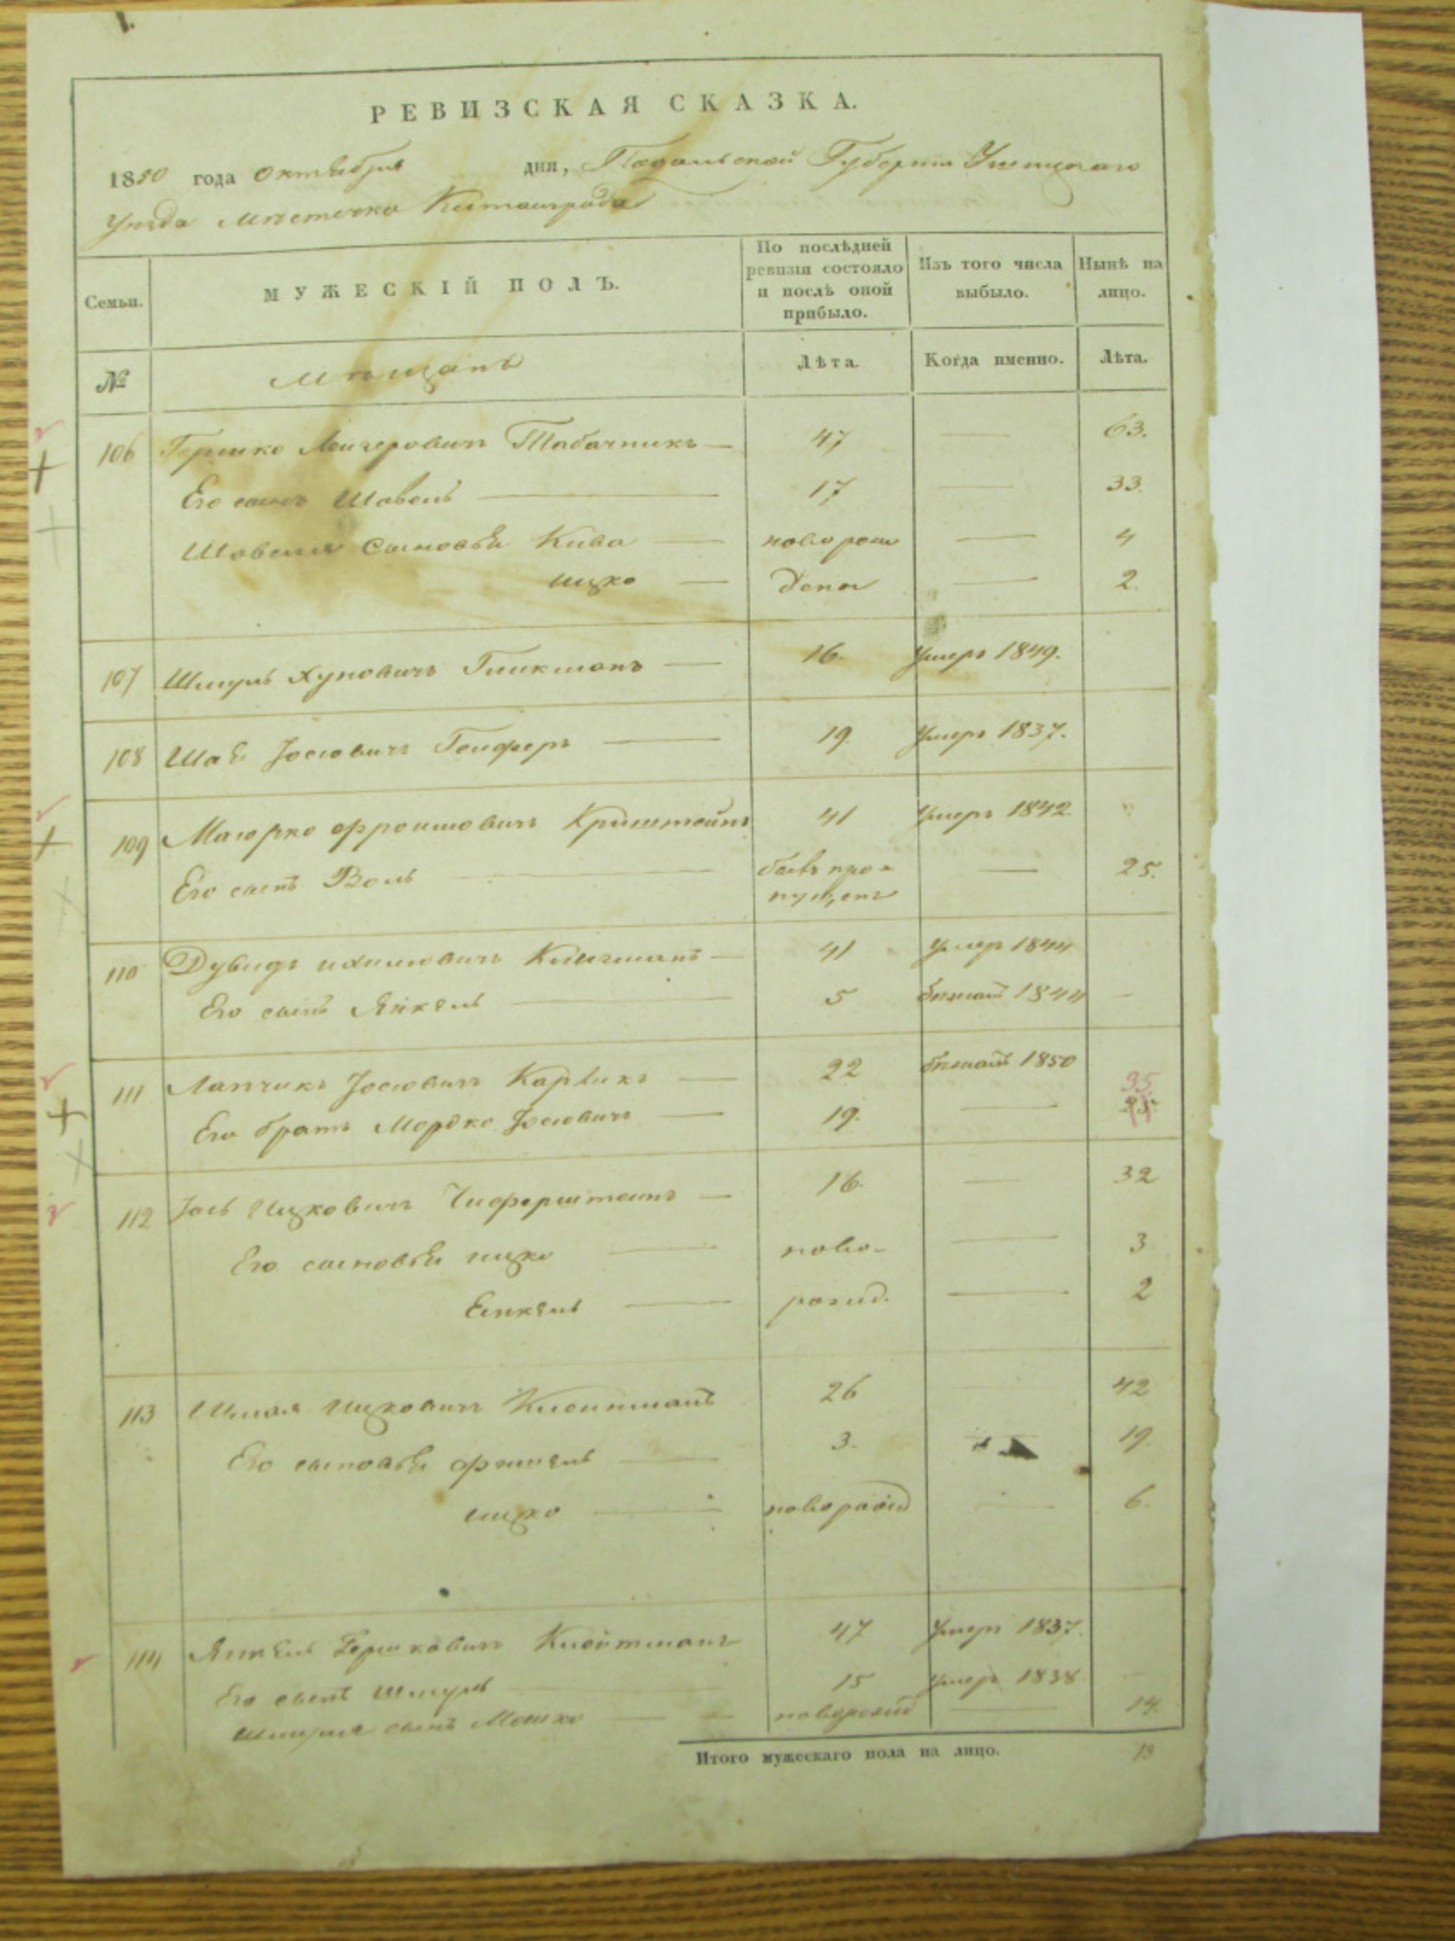 РЕВИЗСКАЯ СКАЗКА.
1850 года Октября дня, Подольской Губернии Ушицкаго
Уезда Местечка Китайгрода
Семьи. МУЖЕСКІЙ ПОЛЪ. По послѣдней ревизіи состояло и послѣ оной прибыло. Изъ того числа выбыло. Нынѣ на лицо.
№ Мещанъ Лѣта. Когда именно. Лѣта.
106 Гершко Лейзеровичъ Табачникъ — 47 — 63.
Его сынъ Шавель — 17 — 33.
Шавеля сыновья Кива — новорож — 4
Ицко — дены — 2.
107 Шмуль Хуновичъ Гликманъ — 16. умеръ 1849.
108 Шая Іосіовичъ — 19. умеръ 1837.
109 Маіорко Фроимовичъ 41 умеръ 1842.
Его сынъ Воль — былъ про- — 25.
пущенъ
110 Дувидъ Клигманъ — 41 умеръ 1844
Его сынъ Янкель — 5 бежалъ 1844 —
111 Іосіовичъ — 22 бежалъ 1850
Его братъ Мордко Іосіовичъ — 19. — 35
112 Іось Ицковичъ — 16. — 32
Его сыновья Ицко — ново- — 3
Янкель — рожд. — 2
113 Шмая Ицковичъ Клейтманъ 26 — 42
Его сыновья — 3. — 19.
Ицко — новорожд — 6.
114 Янкель Гершковичъ Клейтманъ 47 умеръ 1837.
Его сынъ Шмуль — 15 умеръ 1838 —
Шмуля сынъ Мошко — — новорожд — 14.
Итого мужескаго пола на лицо. 13